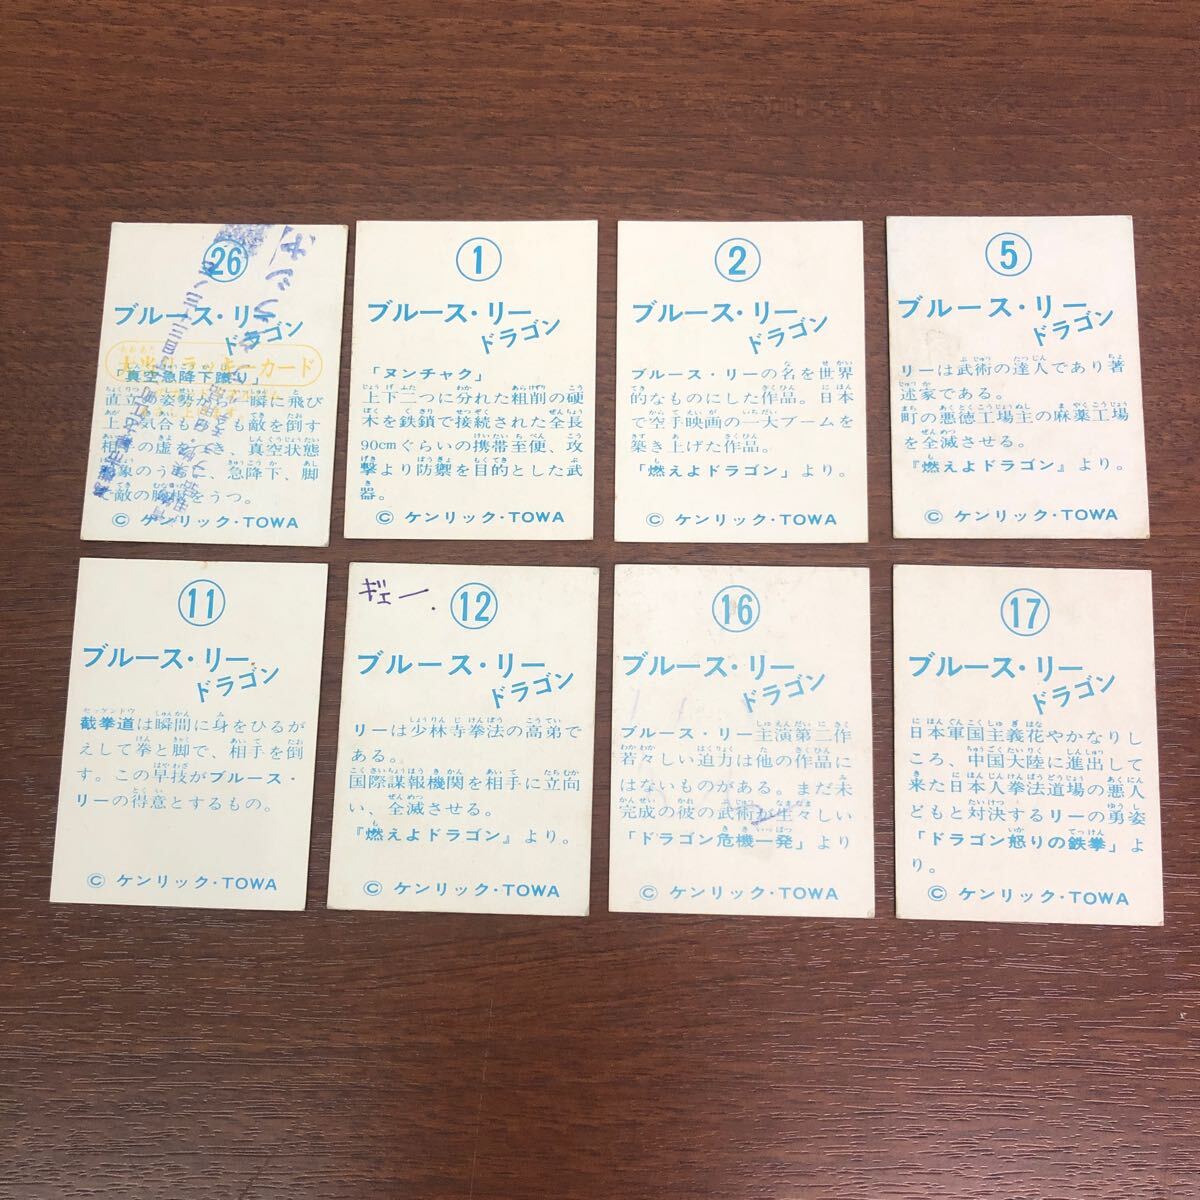 26
ブルース・リー
ドラゴン
「真空急降下蹴り」
上
相
敵の胸板をうつ。
Ⓒ ケンリック・TOWA
1
ブルース・リー
ドラゴン
「ヌンチャク」
上下二つに分れた粗削の硬
木を鉄鎖で接続された全長
90cmぐらいの携帯至便、攻
撃より防禦を目的とした武
器。
Ⓒ ケンリック・TOWA
2
ブルース・リー
ドラゴン
ブルース・リーの名を世界
的なものにした作品。日本
で空手映画の一大ブームを
築き上げた作品。
「燃えよドラゴン」より。
Ⓒ ケンリック・TOWA
5
ブルース・リー
ドラゴン
リーは武術の達人であり著
述家である。
町の悪徳工場主の麻薬工場
を全滅させる。
『燃えよドラゴン』より。
Ⓒ ケンリック・TOWA
11
ブルース・リー
ドラゴン
截拳道は瞬間に身をひるが
えして拳と脚で、相手を倒
す。この早技がブルース・
リーの得意とするもの。
Ⓒ ケンリック・TOWA
ギェー.
12
ブルース・リー
ドラゴン
リーは少林寺拳法の高弟で
ある。
国際諜報機関を相手に立向
い、全滅させる。
『燃えよドラゴン』より。
Ⓒ ケンリック・TOWA
16
ブルース・リー
ドラゴン
ブルース・リー主演第二作
若々しい迫力は他の作品に
はないものがある。まだ未
完成の彼の武術が生々しい
「ドラゴン危機一発」より
Ⓒ ケンリック・TOWA
17
ブルース・リー
ドラゴン
日本軍国主義花やかなりし
ころ、中国大陸に進出して
来た日本人拳法道場の悪人
どもと対決するリーの勇姿
「ドラゴン怒りの鉄拳」よ
り。
Ⓒ ケンリック・TOWA